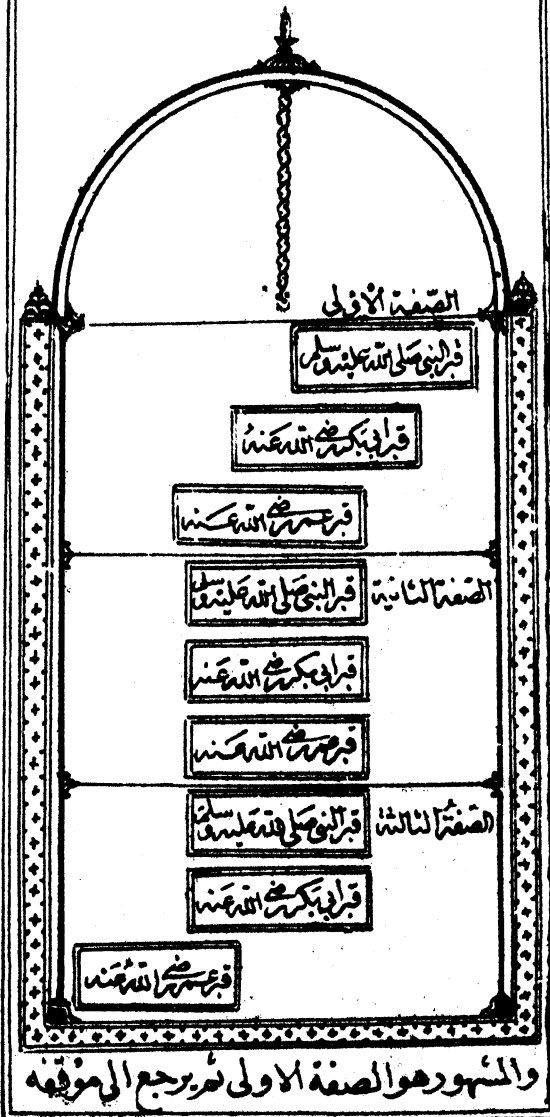 الصفة الأولى
قبر النبي صلى الله عليه وسلم
قبر أبي بكر رضي الله عنه
قبر عمر رضي الله عنه
الصفة الثانية
قبر النبي صلى الله عليه وسلم
قبر أبي بكر رضي الله عنه
قبر عمر رضي الله عنه
الصفة الثالثة
قبر النبي صلى الله عليه وسلم
قبر أبي بكر رضي الله عنه
قبر عمر رضي الله عنه
والمشهور هو الصفة الاولى ثم يرجع الى موقفه